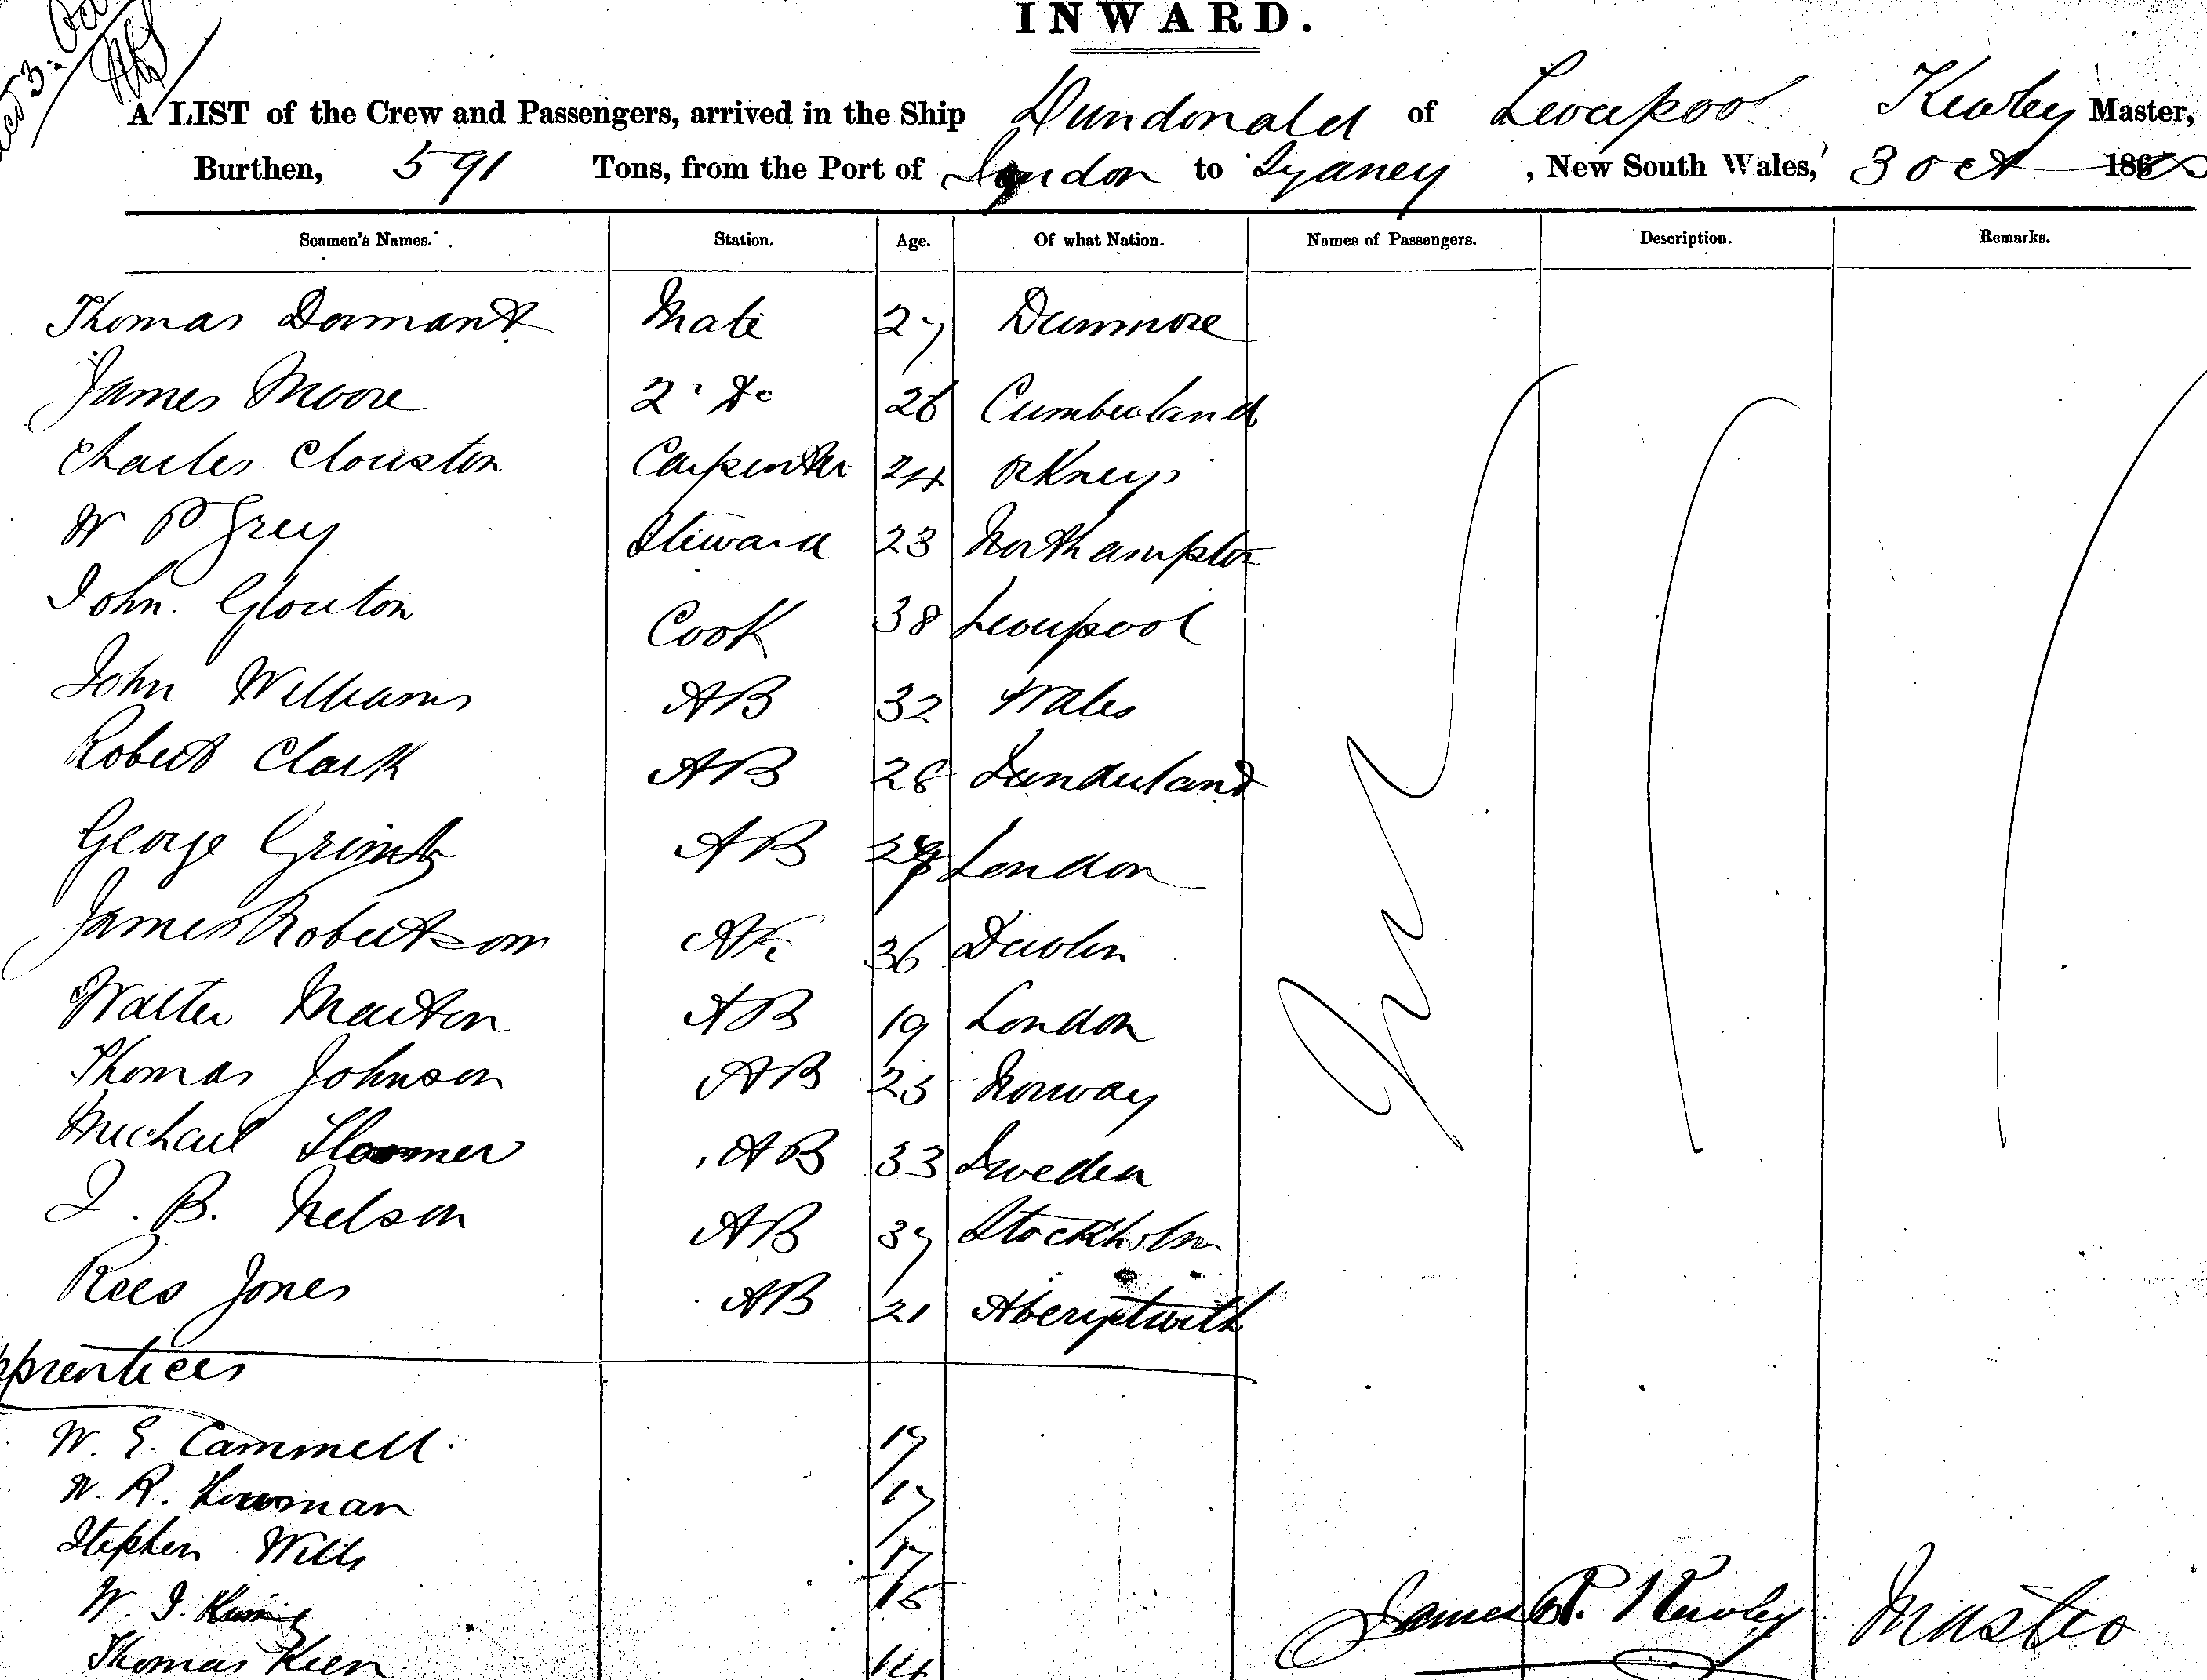 INWARD.
A LIST of the Crew and Passengers, arrived in the Ship Dundonald of Liverpool Kewley Master,
Burthen, 591 Tons, from the Port of London to Sydney, New South Wales, 3 Oct 186
Seamen's Names. Station. Age. Of what Nation. Names of Passengers. Description. Remarks.
Thomas Dormant Mate 27 Dunmore
James Moore 2 Do 26 Cumberland
Charles Clouston Carpenter 24 Orkneys
W P Grey Steward 23 Northampton
John Glouton Cook 38 Liverpool
John Williams AB 32 Wales
Robert Clark AB 28 Sunderland
George AB London
James Robertson AB 36
Walter Marton AB 19 London
Thomas Johnson AB 25 Norway
Michael AB 33 Sweden
J. B. Nelson AB 37 Stockholm
Rees Jones AB 21 Aberystwith
pprentices
W. E. Cammell 19
W. R. 17
Stephen Wills 17
W. J. 15
Thomas Keen 14
James R. Kewley Master